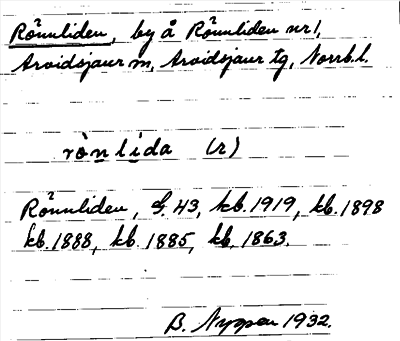 Rönnliden, by å Rönnliden nr 1,
Arvidsjaur sn, Arvidsjaur tg, Norrb. l.
rònlìda (r)
Rönnliden, G. 43, kb. 1919, kb. 1898
kb. 1888, kb. 1885, kb. 1863.
B. Nyman 1932.